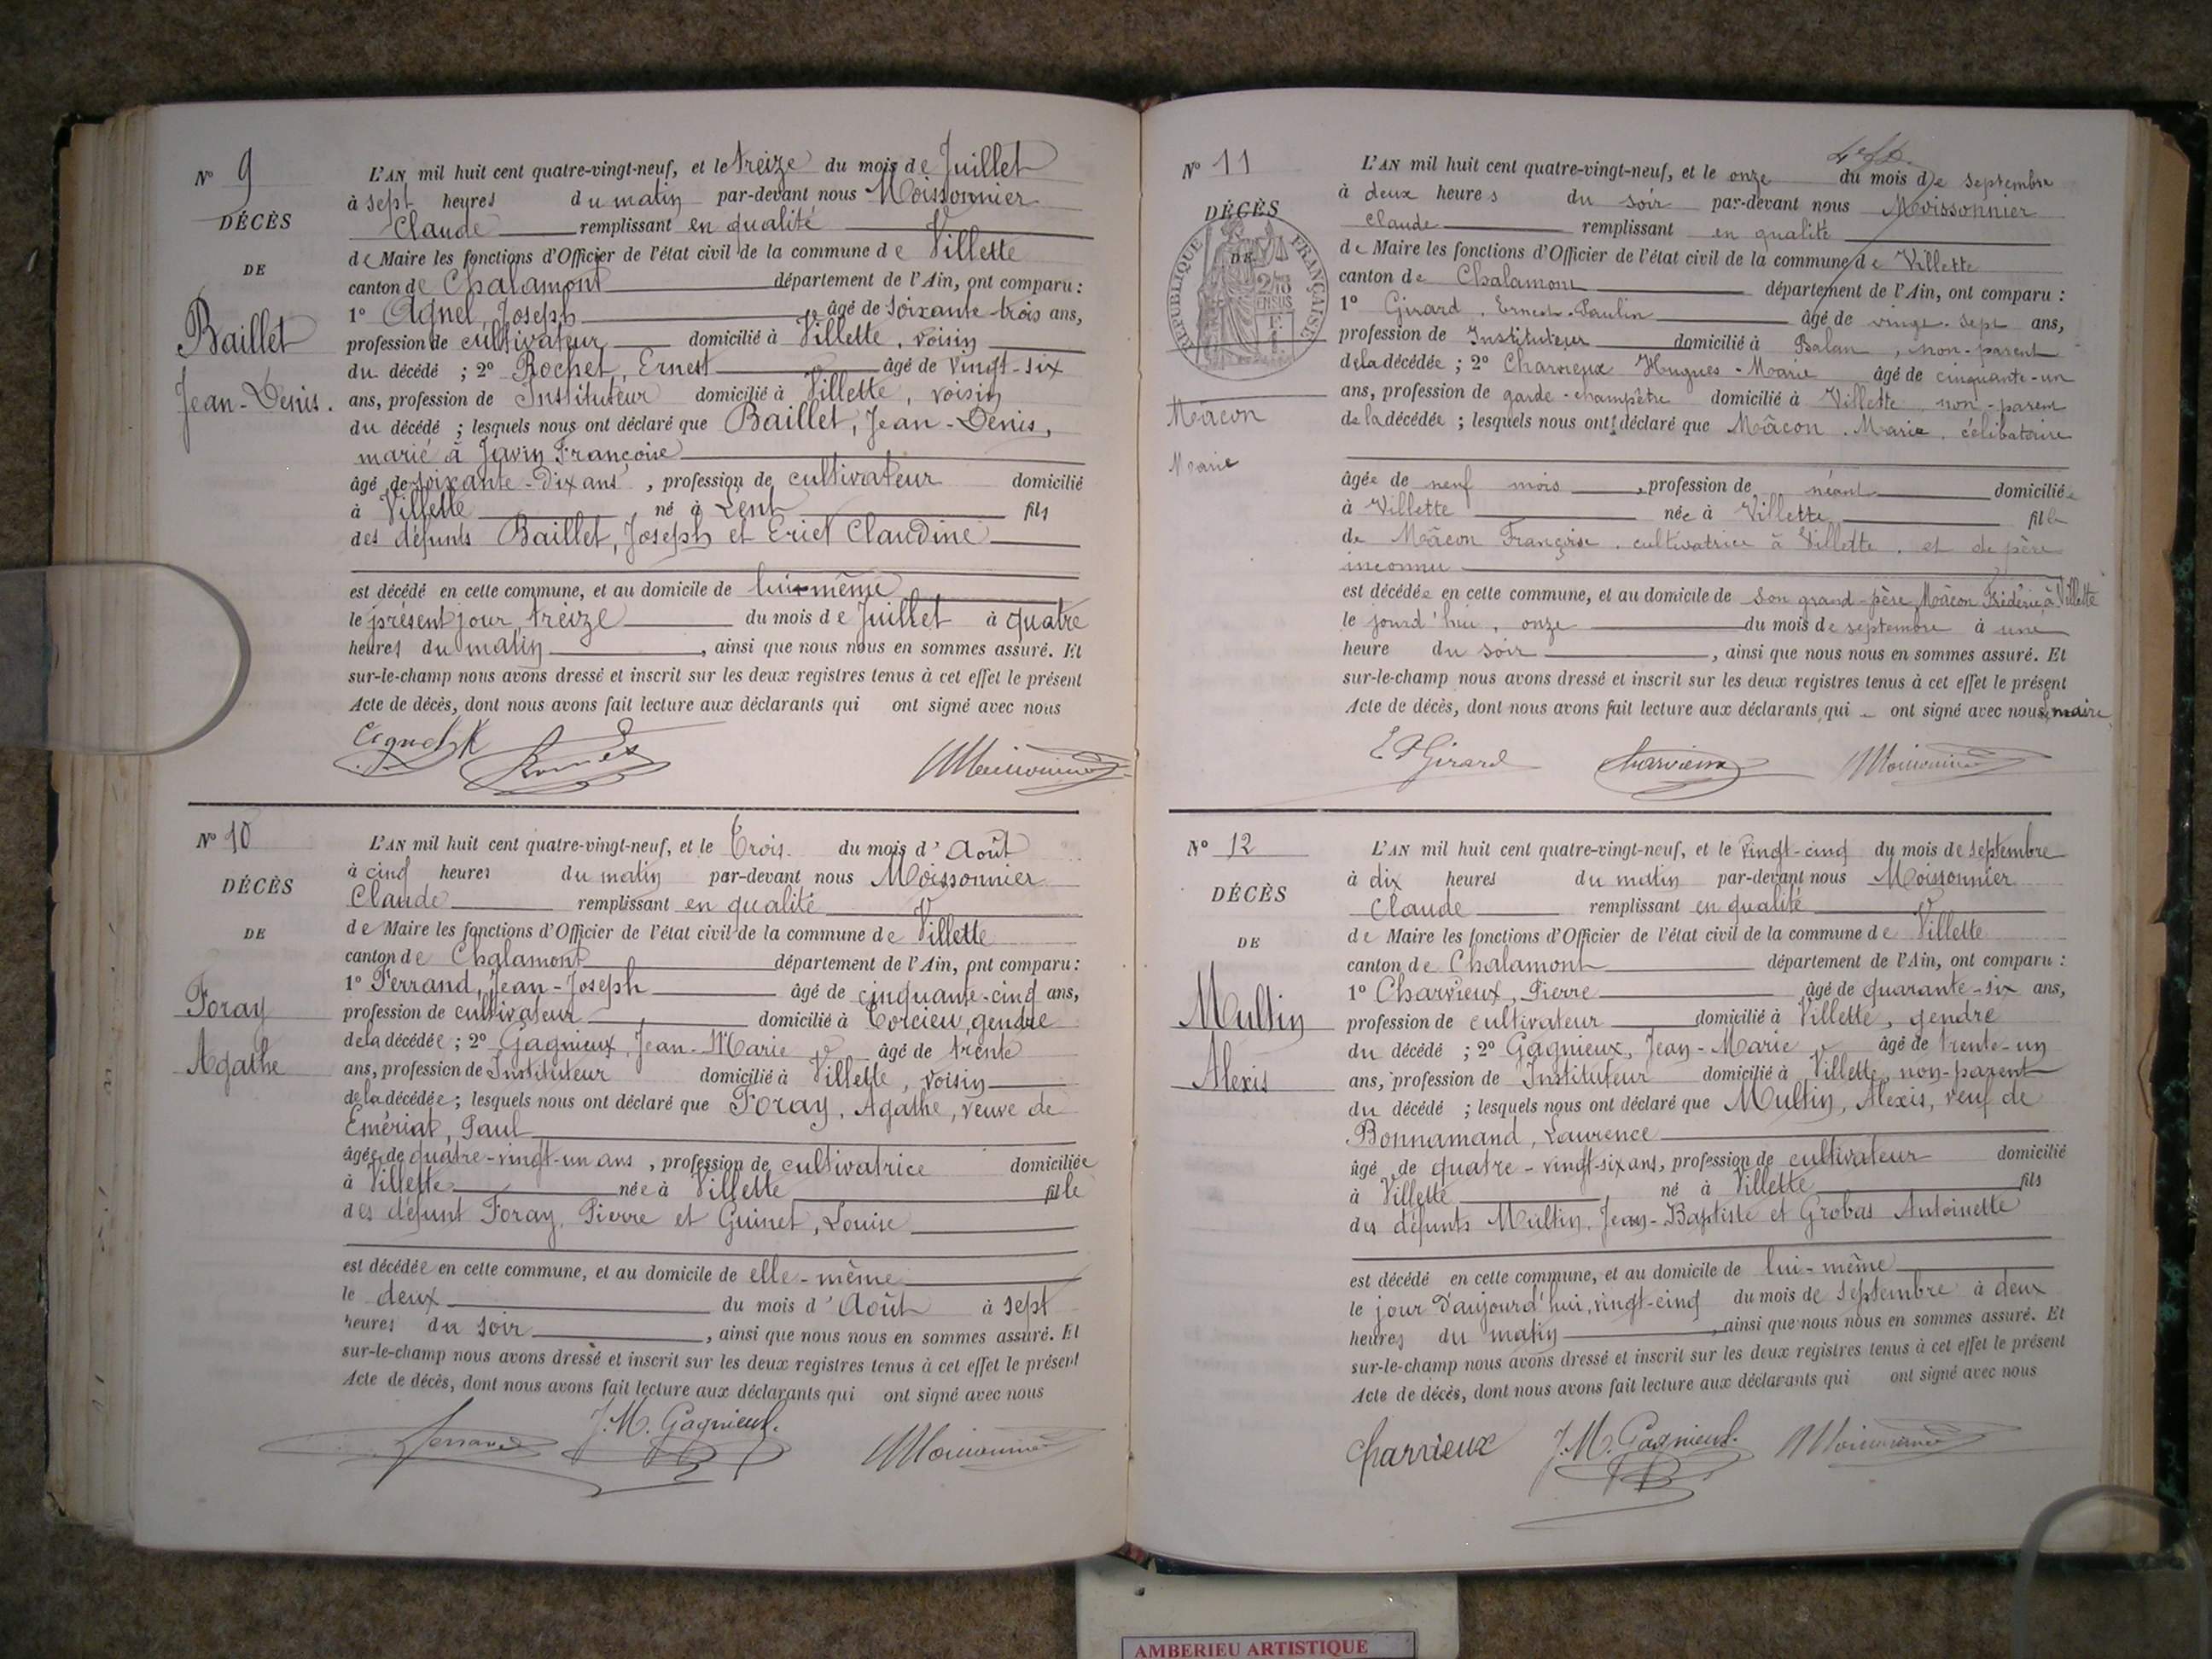 N° 9
DÉCÈS
DE
Baillet
Jean-Denis.
L'AN mil huit cent quatre-vingt-neuf, et le treize du mois de Juillet
à sept heures du matin par-devant nous Moissonnier
Claude remplissant en qualité
de Maire les fonctions d'Officier de l'état civil de la commune de Villette
canton de Chalamont département de l'Ain, ont comparu :
1° Agnel, Joseph âgé de soixante-trois ans,
profession de cultivateur domicilié à Villette, voisin
du décédé ; 2° Rochet, Ernest âgé de Vingt-six
ans, profession de Instituteur domicilié à Villette, voisin
du décédé ; lesquels nous ont déclaré que Baillet, Jean-Denis,
marié à Javin Françoise
âgé de soixante-dix ans, profession de cultivateur domicilié
à Villette né à Lent fils
des défunts Baillet, Joseph et Eriet Claudine
est décédé en cette commune, et au domicile de lui-même
le présent jour, treize du mois de Juillet à quatre
heures du matin, ainsi que nous nous en sommes assuré. Et
sur-le-champ nous avons dressé et inscrit sur les deux registres tenus à cet effet le présent
Acte de décès, dont nous avons fait lecture aux déclarants qui ont signé avec nous
N° 10
DÉCÈS
DE
Foray
Agathe
L'AN mil huit cent quatre-vingt-neuf, et le Trois du mois d'Août
à cinq heures du matin par-devant nous Moissonnier
Claude remplissant en qualité
de Maire les fonctions d'Officier de l'état civil de la commune de Villette
canton de Chalamont département de l'Ain, ont comparu :
1° Ferrand, Jean-Joseph âgé de cinquante-cinq ans,
profession de cultivateur domicilié à Torcieu, gendre
de la décédée ; 2° Gagnieux, Jean-Marie âgé de trente
ans, profession de Instituteur domicilié à Villette, voisin
de la décédée ; lesquels nous ont déclaré que Foray, Agathe, veuve de
Emériat, Paul
âgée de quatre-vingt-un ans, profession de cultivatrice domiciliée
à Villette née à Villette fille
des défunt Foray, Pierre et Guinet, Louise
est décédée en cette commune, et au domicile de elle-même
le deux du mois d'Août à sept
heures du soir, ainsi que nous nous en sommes assuré. Et
sur-le-champ nous avons dressé et inscrit sur les deux registres tenus à cet effet le présent
Acte de décès, dont nous avons fait lecture aux déclarants qui ont signé avec nous
Ferrand J.M. Gagnieux. Moissonnier
N° 11
DÉCÈS
DE
RÉPUBLIQUE FRANÇAISE
Mâcon
Marie
L'AN mil huit cent quatre-vingt-neuf, et le onze du mois de septembre
à deux heures du soir par-devant nous Moissonnier
Claude remplissant en qualité
de Maire les fonctions d'Officier de l'état civil de la commune de Villette
canton de Chalamont département de l'Ain, ont comparu :
1° Girard, Ernest-Paulin âgé de vingt-sept ans,
profession de Instituteur domicilié à Balan, non-parent
de la décédée ; 2° Charvieux Hugues-Marie âgé de cinquante-un
ans, profession de garde-champêtre domicilié à Villette non-parent
de la décédée ; lesquels nous ont déclaré que Mâcon, Marie, célibataire
âgée de neuf mois, profession de néant domiciliée
à Villette née à Villette fille
de Mâcon Françoise, cultivatrice à Villette, et de père
inconnu
est décédée en cette commune, et au domicile de son grand-père, Mâcon Frédéric, à Villette
le jourd'hui, onze du mois de septembre à une
heure du soir, ainsi que nous nous en sommes assuré. Et
sur-le-champ nous avons dressé et inscrit sur les deux registres tenus à cet effet le présent
Acte de décès, dont nous avons fait lecture aux déclarants qui ont signé avec nous, maire
E P Girard Charvieux Moissonnier
N° 12
DÉCÈS
DE
Multin
Alexis
L'AN mil huit cent quatre-vingt-neuf, et le Vingt-cinq du mois de septembre
à dix heures du matin par-devant nous Moissonnier
Claude remplissant en qualité
de Maire les fonctions d'Officier de l'état civil de la commune de Villette
canton de Chalamont département de l'Ain, ont comparu :
1° Charvieux, Pierre âgé de quarante-six ans,
profession de cultivateur domicilié à Villette, gendre
du décédé ; 2° Gagnieux, Jean-Marie âgé de trente-un
ans, profession de Instituteur domicilié à Villette, non-parent
du décédé ; lesquels nous ont déclaré que Multin, Alexis, veuf de
Bonnamand, Laurence
âgé de quatre-vingt-six ans, profession de cultivateur domicilié
à Villette né à Villette fils
des défunts Multin, Jean-Baptiste et Grobas Antoinette
est décédé en cette commune, et au domicile de lui-même
le jour d'aujourd'hui, vingt-cinq du mois de septembre à deux
heures du matin, ainsi que nous nous en sommes assuré. Et
sur-le-champ nous avons dressé et inscrit sur les deux registres tenus à cet effet le présent
Acte de décès, dont nous avons fait lecture aux déclarants qui ont signé avec nous
Charvieux J.M. Gagnieux. Moissonnier
AMBERIEU ARTISTIQUE